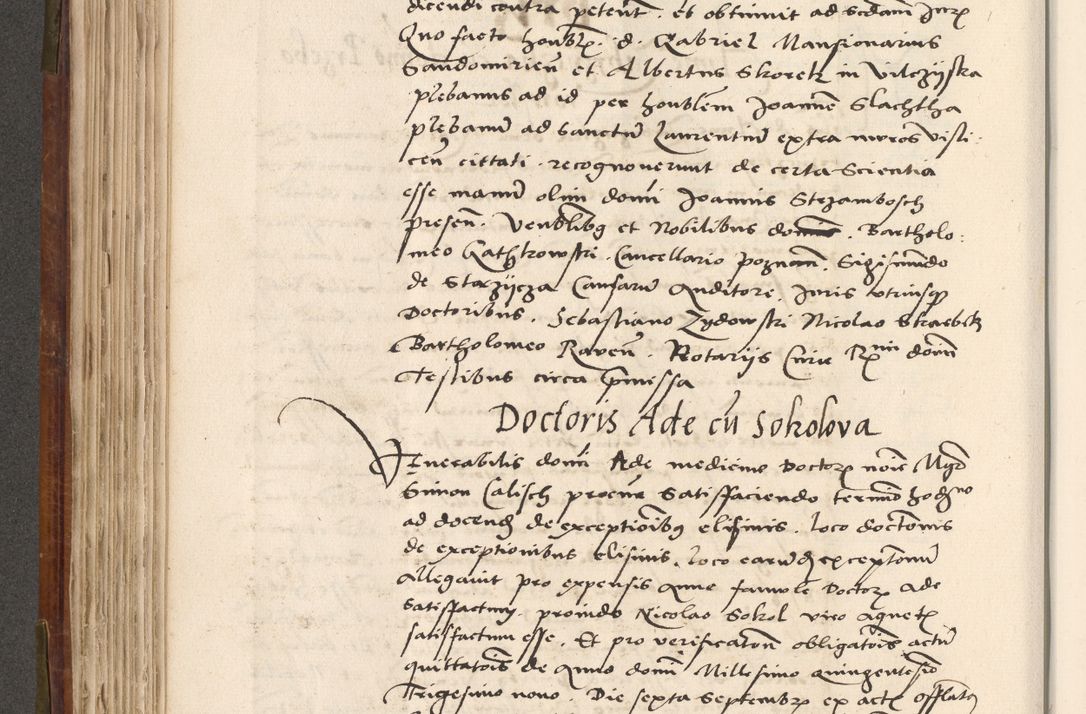 dicendi contra petent. et obtinuit ad scdam Jurx
Quo facto honblx. d. Gabriel Mansionarius
Sandomirien et Albertus Skorek in Vilczyska
plebanus ad id per honblem Joannem Slachtha
plebanum ad Sanctum Laurentium extra muros Visli
cen cittati. recognoverunt de certa Scientia
esse manum olim domi Joannis Strzambosch
presen. Venblibq et Nobilibus Bartholo:
meo Gathkowski. Cancellario poznan. Sigismundo
de Starzijcza Causarum Auditore. Juris utriusqz
Doctoribus. Sebastiano Zydowski Nicolao Skarbek
Bartholomeo Raven. Notarijs Curie Rmi domi
Testibus circa pmissa
Doctoris Ade cu Sokolova
Venerabilis domi Ade medicine Doctorx noie Mgr
Simon Calisch procur Satisfaciendo termino hodno
ad docend de exceptioibq elisivis. loco doctonis
de exceptionibus elisivis. loco earund exceptionum
Allegavit pro expensis que famule Doctorx Ade
Satisfactum. proindo Nicolao Sokol viro agnetx
satisfactum esse. Et pro verificaton obligatois actum
quittatois de Anno domi Millesimo quingentesio
Trigesimo nono. Die sexta Septembrx ex actx offlatq